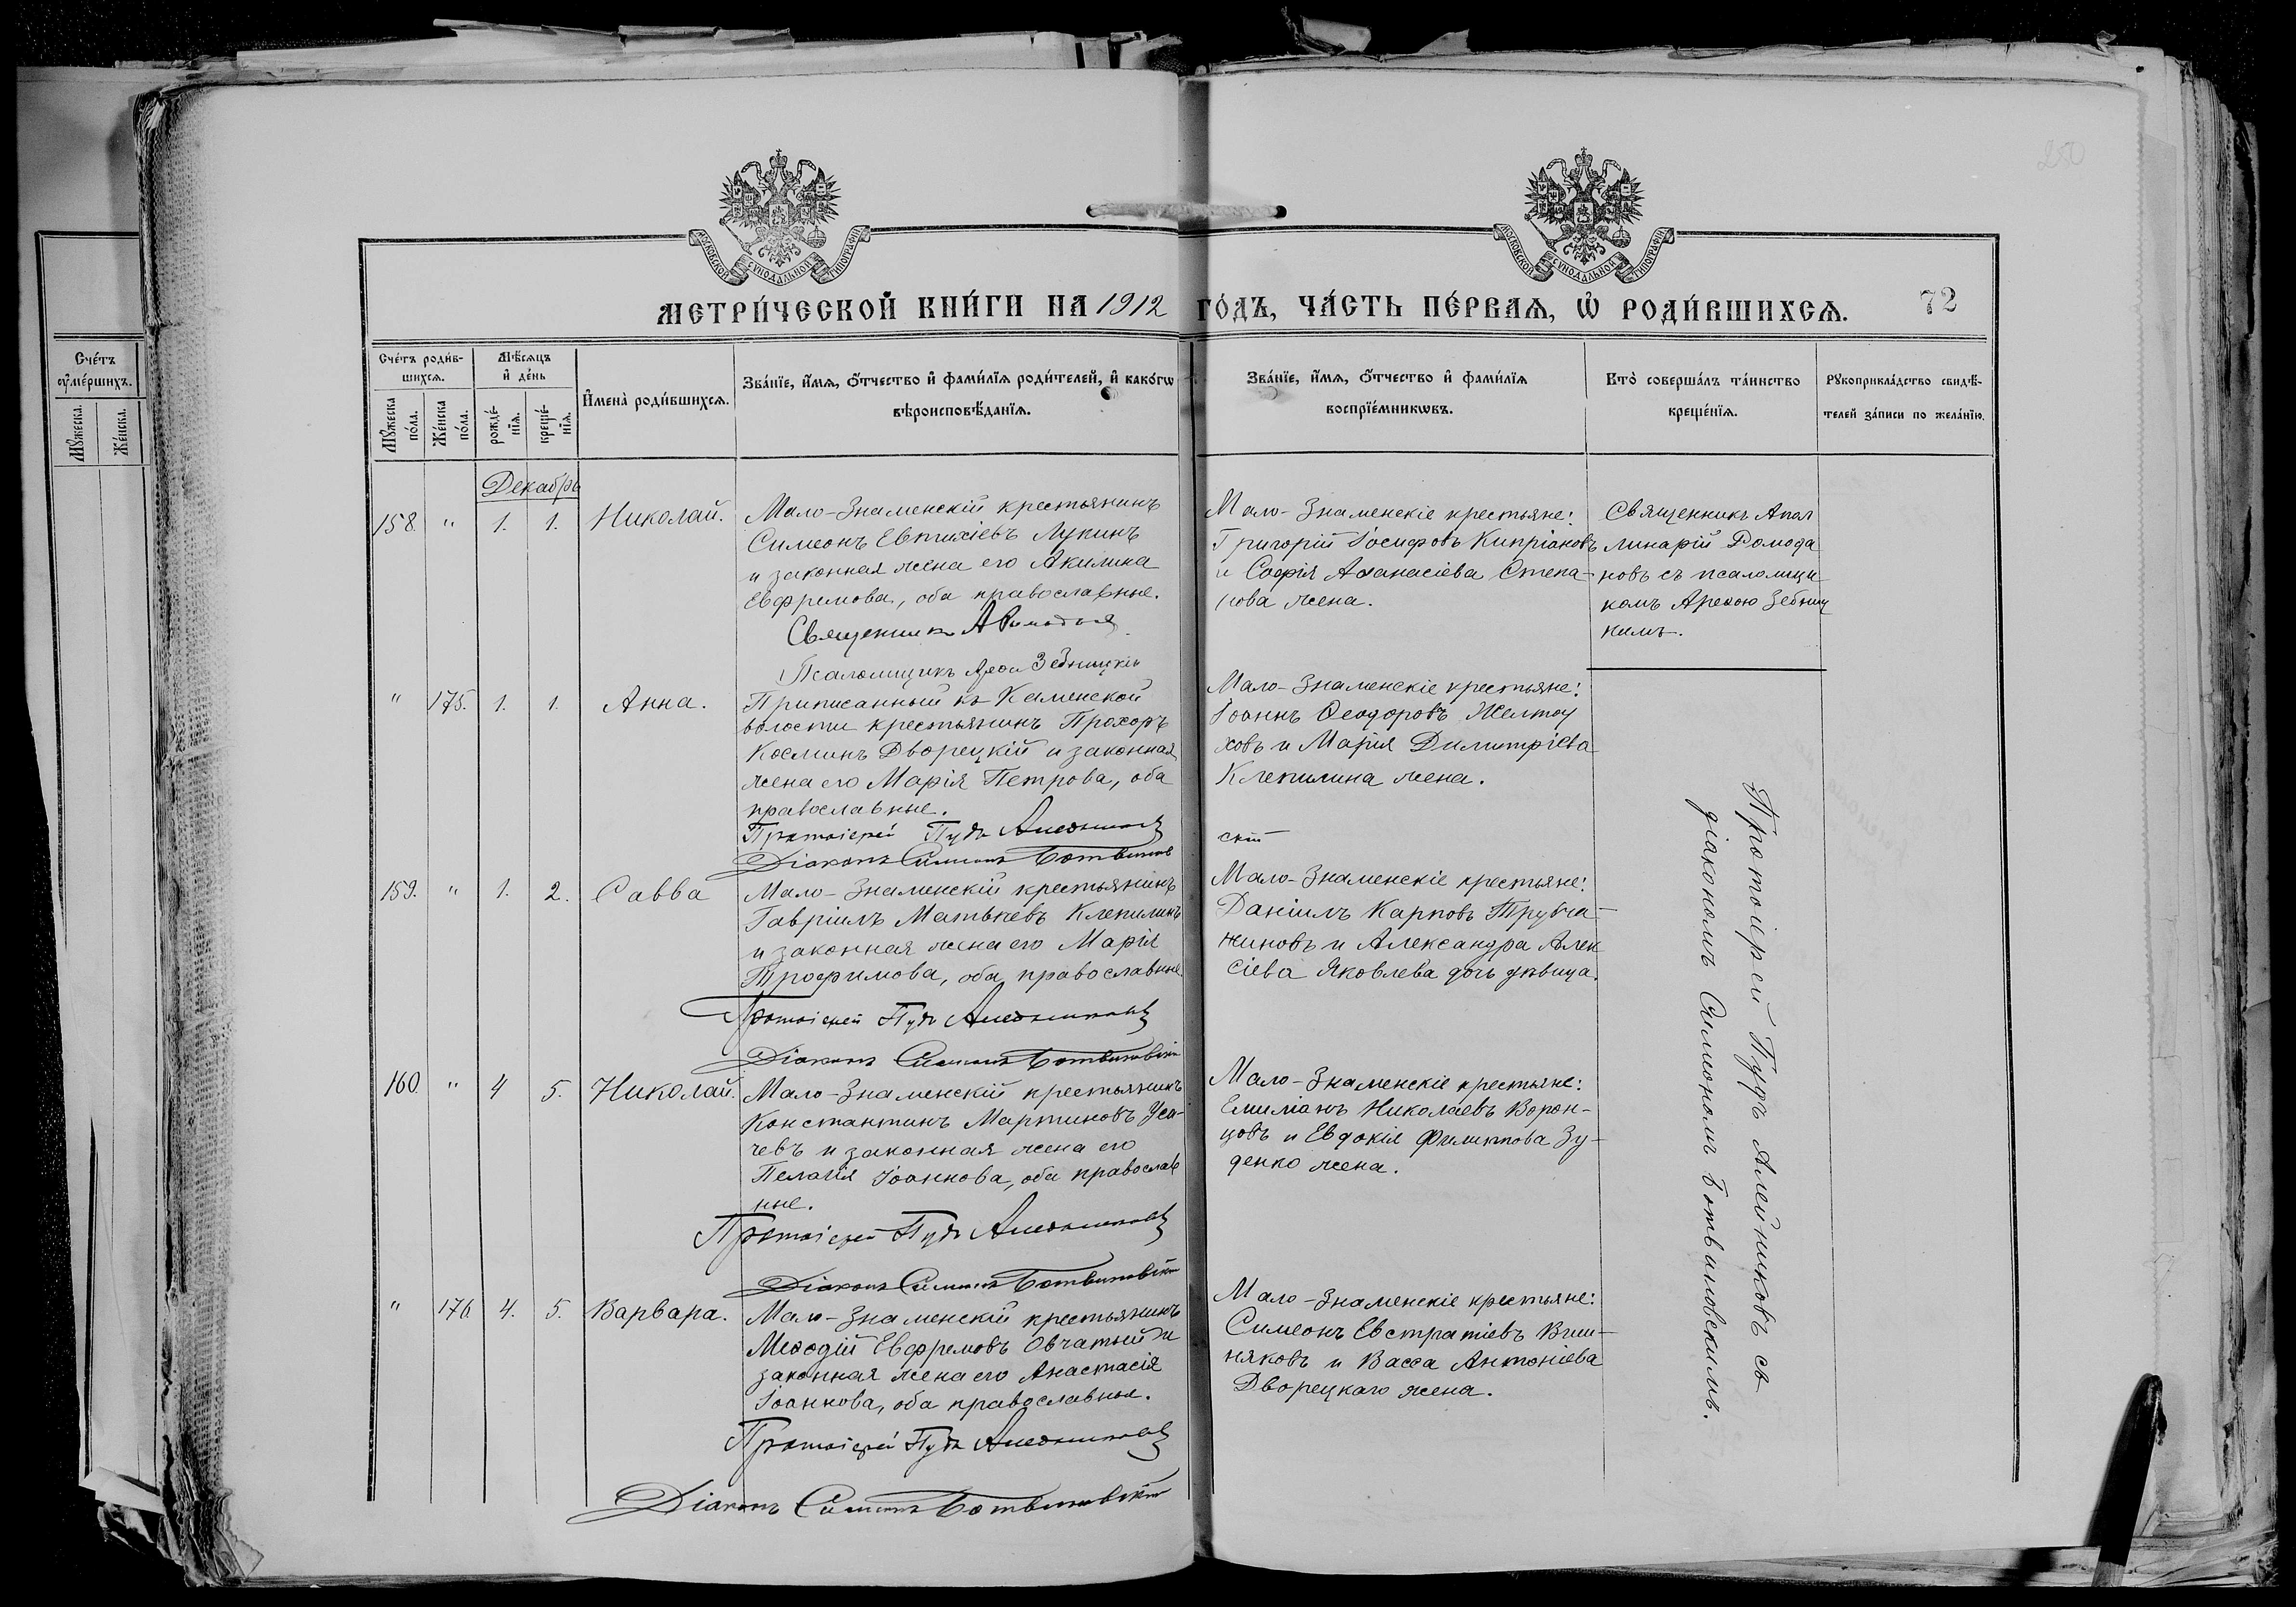 250
МОСКОВСКОЙ СѴНОДАЛЬНОЙ ТИПОГРАФІИ
МОСКОВСКОЙ СѴНОДАЛЬНОЙ ТИПОГРАФІИ
МЕТРИ́ЧЕСКОЙ КНИ́ГИ НА 1912 ГО́ДЪ, ЧА́СТЬ ПЕ́РВАѦ, Ѡ РОДИ́ВШИХСѦ. 72
Сче́тъ
ᲂу҆ме́ршихъ.
Мꙋ́жеска.
Же́нска.
Сче́тъ роди́в-
шихсѧ.
Мꙋ́жеска
по́ла.
Же́нска
по́ла.
Мѣ́сѧцъ
и҆ де́нь
рожде́-
нїѧ.
креще́-
нїѧ.
И҆мена̀ роди́вшихсѧ.
Зва́нїе, и҆́мѧ, ѻ҆́тчество и҆ фами́лїѧ роди́телей, и҆ како́гѡ
вѣроисповѣ́данїѧ.
Зва́нїе, и҆́мѧ, ѻ҆́тчество и҆ фами́лїѧ
воспрїе́мникѡвъ.
Кто̀ соверша́лъ та́инство
креще́нїѧ.
Рꙋкоприкла́дство свидѣ́-
телей за́писи по жела́нїю.
Декабрь
158. " 1. 1. Николай.
Мало-Знаменскій крестьянинъ
Симеонъ Евтихіевъ Лукинъ
и законная жена его Акилина
Евфремова, оба православные.
Священникъ
Псаломщикъ Арефа Зебницкій
Мало-Знаменскіе крестьяне:
Григорій Іосифовъ Кипріановъ
и Софія Аѳанасіева Степа-
нова жена.
Священникъ Апол
линарій Ромода
новъ съ псаломщи
комъ Арефою Зебниц
кимъ.
" 175. 1. 1. Анна.
Приписанный къ Каменской
волости крестьянинъ Прохоръ
Косминъ Дворецкій и законная
жена его Марія Петрова, оба
православные.
Протоіерей Пудъ Алейниковъ
Діаконъ Симеонъ Ботвинов
скій
Мало-Знаменскіе крестьяне:
Іоаннъ Ѳеодоровъ Желтоу
ховъ и Марія Димитріева
Клепилина жена.
159. " 1. 2. Савва
Мало-Знаменскій крестьянинъ
Гавріилъ Матвѣевъ Клепилинъ
и законная жена его Марія
Трофимова, оба православные.
Протоіерей Пудъ Алейниковъ
Діаконъ Симеонъ Ботвиновскій
Мало-Знаменскіе крестьяне:
Даніилъ Карповъ Трубча-
ниновъ и Александра Алек
сіева Яковлева дочь дѣвица.
160. " 4 5. Николай.
Мало-Знаменскій крестьянинъ
Константинъ Мартиновъ Уса-
чевъ и законная жена его
Пелагія Іоаннова, оба православ
ные.
Протоіерей Пудъ Алейниковъ
Діаконъ Симеонъ Ботвиновскій
Мало-Знаменскіе крестьяне:
Емиліанъ Николаевъ Ворон-
цовъ и Евдокія Филиппова Зу-
денко жена.
" 176 4. 5. Варвара.
Мало-Знаменскій крестьянинъ
Меѳодій Евфремовъ Овчатый и
законная жена его Анастасія
Іоаннова, оба православные.
Протоіерей Пудъ Алейниковъ
Діаконъ Симеонъ Ботвиновскій
Мало-Знаменскіе крестьяне:
Симеонъ Евстратіевъ Виш-
няковъ и Васса Антоніева
Дворецкаго жена.
Протоіерей Пудъ Алейниковъ съ
діакономъ Симеономъ Ботвиновскимъ.